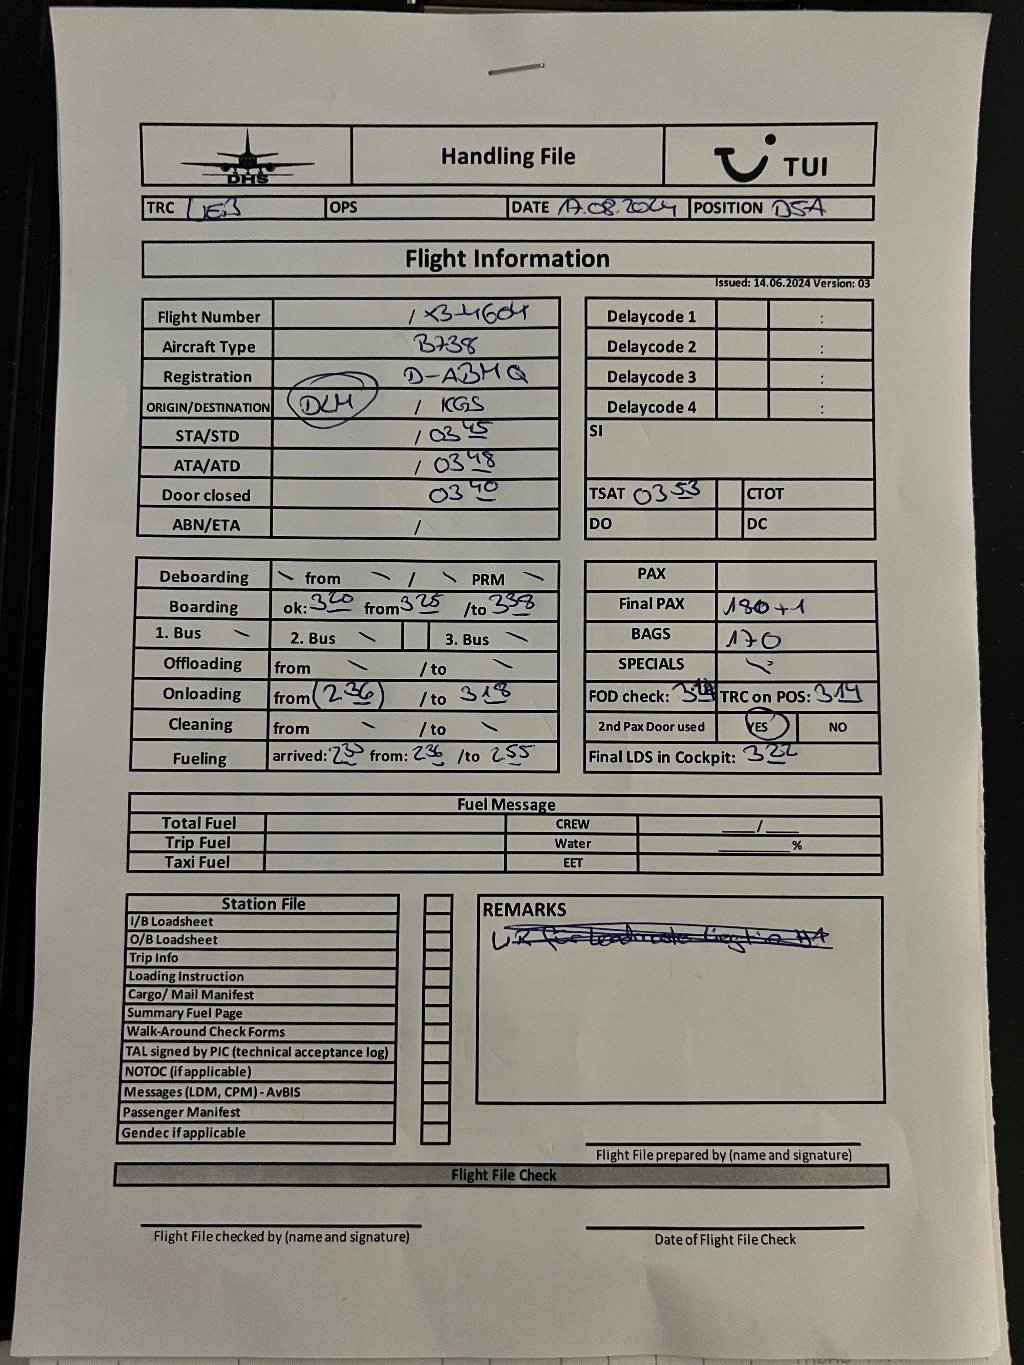 DHS Handling File TUI
TRC LIEB OPS DATE 17.08.2024 POSITION D5A
Flight Information
Issued: 14.06.2024 Version: 03
Flight Number / X3-4604
Aircraft Type B738
Registration D-ABMQ
ORIGIN/DESTINATION DLM / KGS
STA/STD / 0345
ATA/ATD / 0348
Door closed 0340
ABN/ETA /
Delaycode 1 :
Delaycode 2 :
Delaycode 3 :
Delaycode 4 :
SI
TSAT 0353 CTOT
DO DC
Deboarding \ from \ / \ PRM \
Boarding ok: 320 from 325 /to 338
1. Bus \ 2. Bus \ 3. Bus \
Offloading from \ / to \
Onloading from (236) / to 318
Cleaning from \ / to \
Fueling arrived: 235 from: 236 /to 255
PAX
Final PAX 180+1
BAGS 170
SPECIALS
FOD check: TRC on POS: 314
2nd Pax Door used YES NO
Final LDS in Cockpit: 322
Fuel Message
Total Fuel CREW ___/___
Trip Fuel Water ______%
Taxi Fuel EET
Station File
I/B Loadsheet
O/B Loadsheet
Trip Info
Loading Instruction
Cargo/ Mail Manifest
Summary Fuel Page
Walk-Around Check Forms
TAL signed by PIC (technical acceptance log)
NOTOC (if applicable)
Messages (LDM, CPM) - AvBIS
Passenger Manifest
Gendec if applicable
REMARKS
Flight File prepared by (name and signature)
Flight File Check
Flight File checked by (name and signature)
Date of Flight File Check